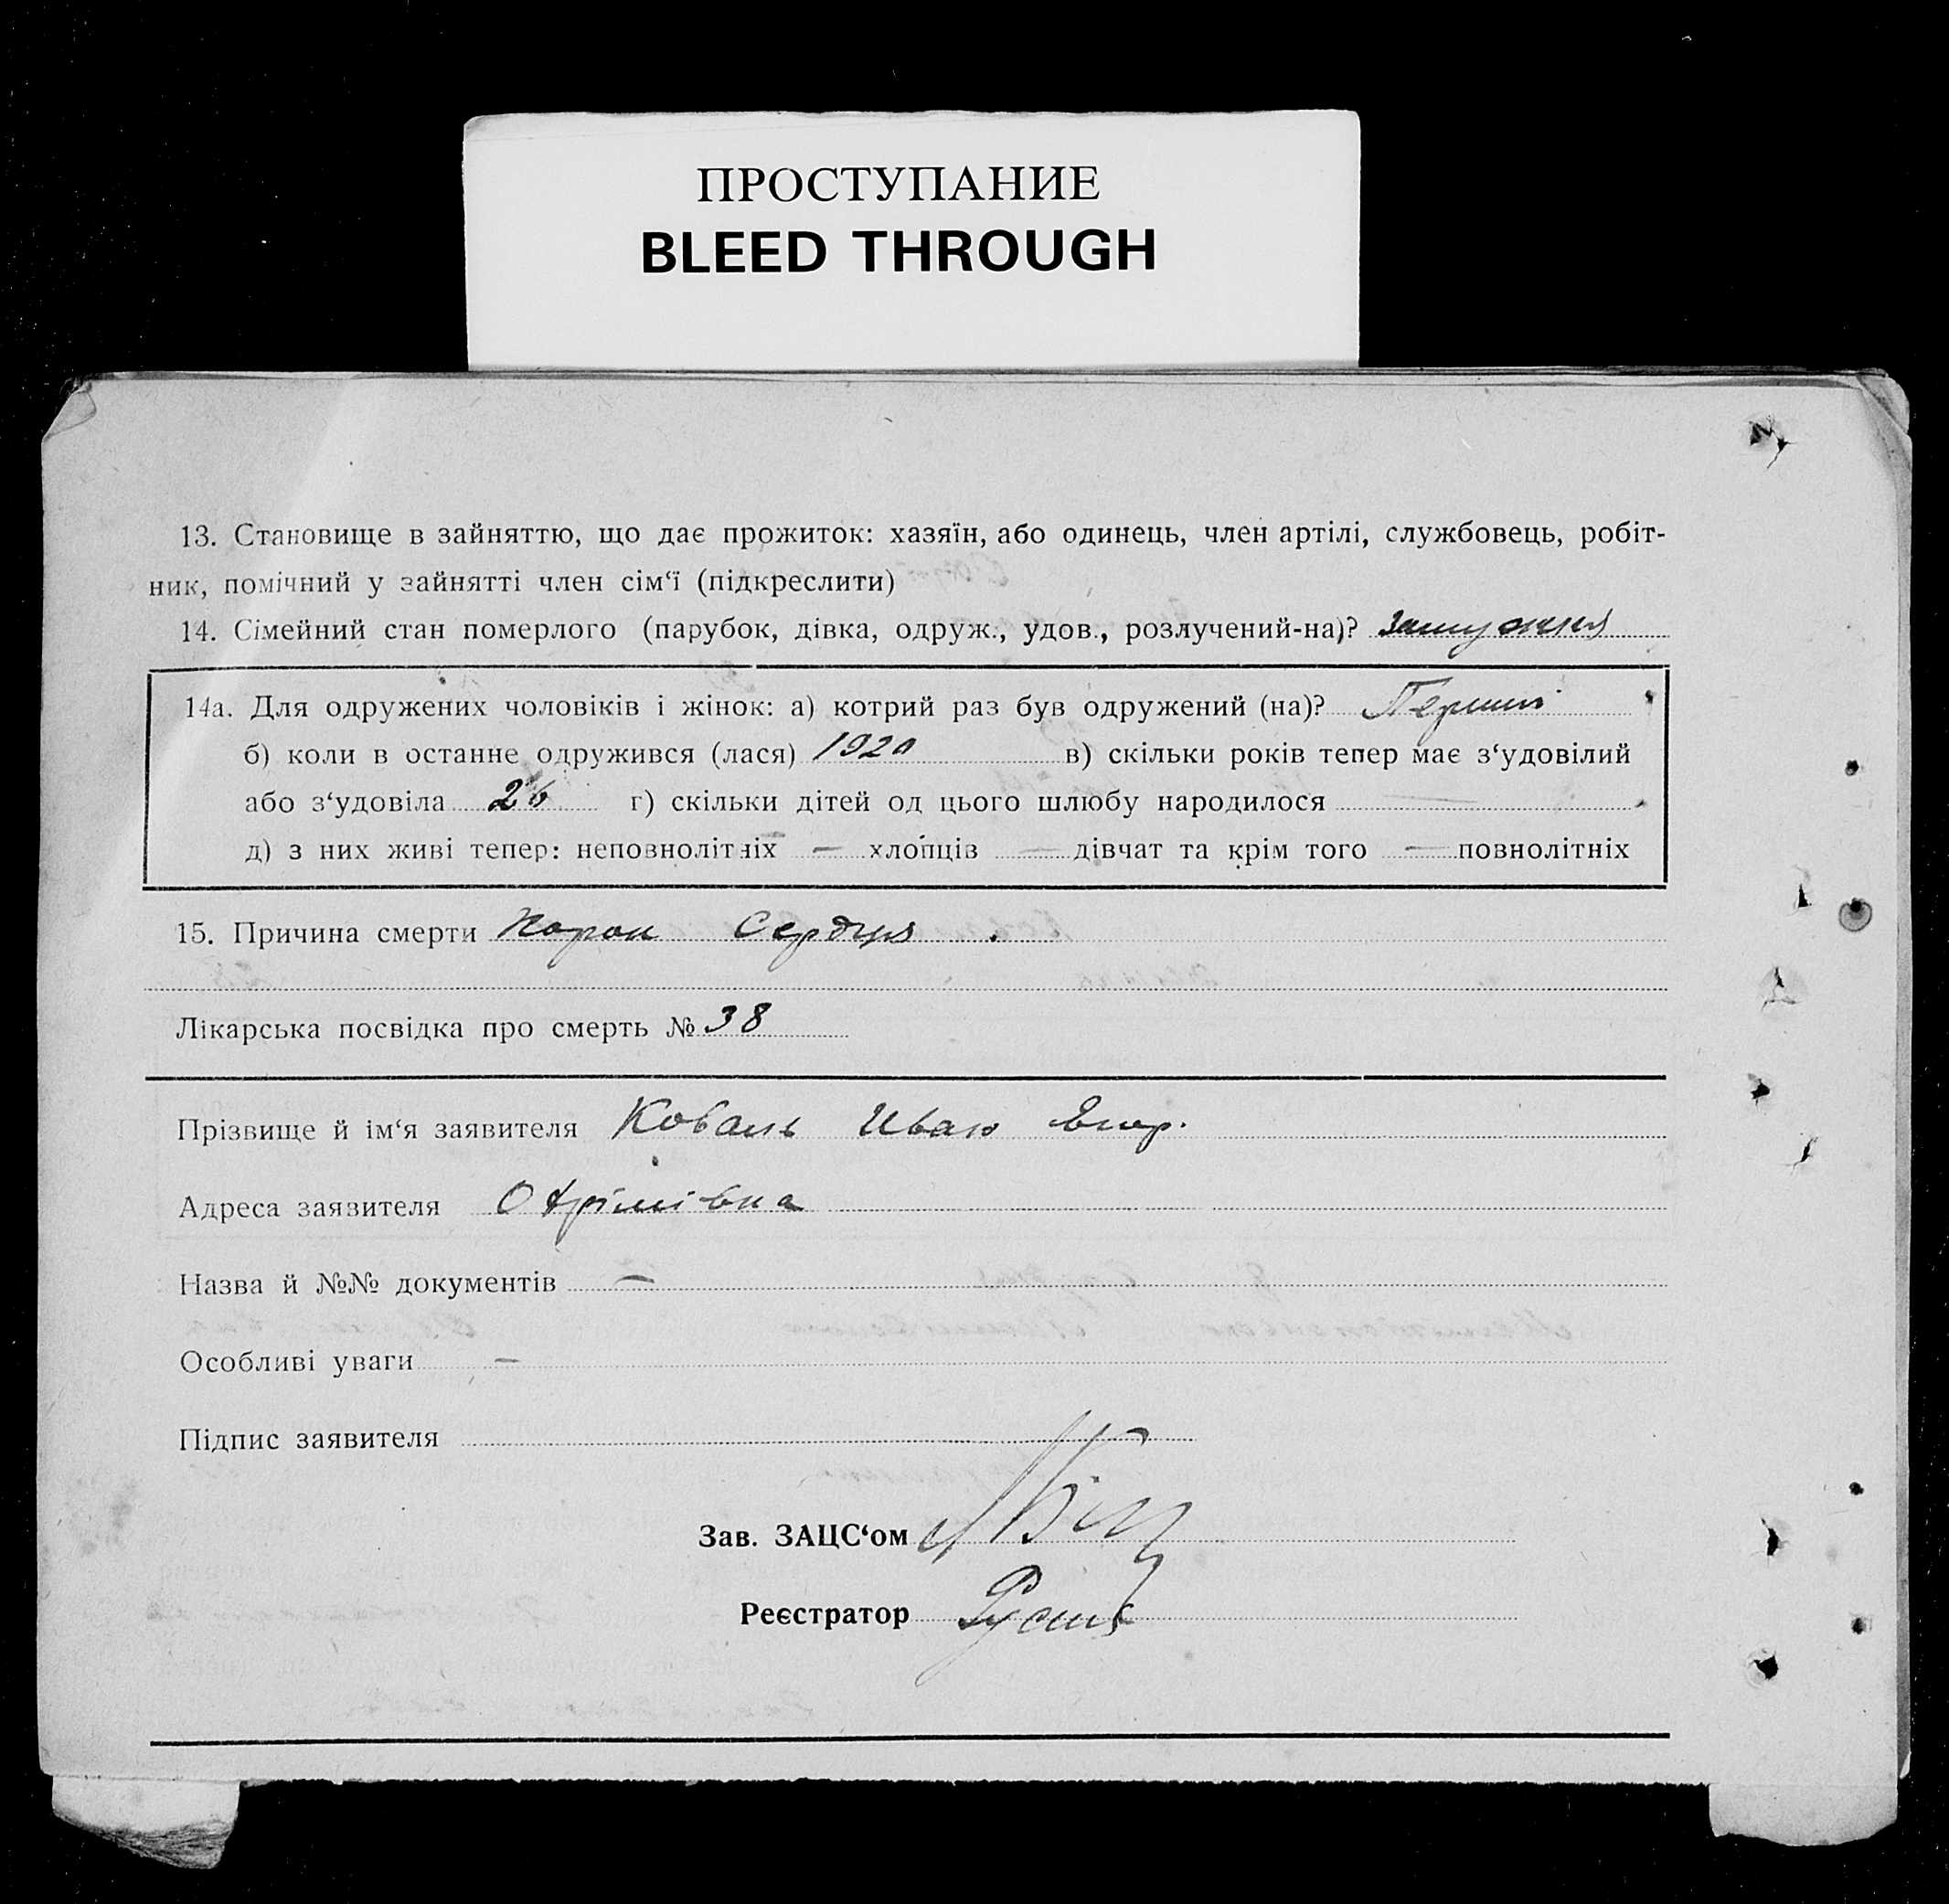 ПРОСТУПАНИЕ
BLEED THROUGH
13. Становище в зайняттю, що дає прожиток: хазяїн, або одинець, член артілі, службовець, робіт-
ник, помічний у зайнятті член сім‘ї (підкреслити)
14. Сімейний стан померлого (парубок, дівка, одруж., удов., розлучений-на)? замужня
14а. Для одружених чоловіків і жінок: а) котрий раз був одружений (на)? Перший
б) коли в останне одружився (лася) 1920 в) скільки років тепер має з‘удовілий
або з‘удовіла 26 г) скільки дітей од цього шлюбу народилося —
д) з них живі тепер: неповнолітніх — хлопців — дівчат та крім того — повнолітніх
15. Причина смерти Порок Сердця.
Лікарська посвідка про смерть № 38
Прізвище й ім‘я заявителя Коваль Иван Егор.
Адреса заявителя
Назва й №№ документів —
Особливі уваги —
Підпис заявителя
Зав. ЗАЦС‘ом
Реєстратор